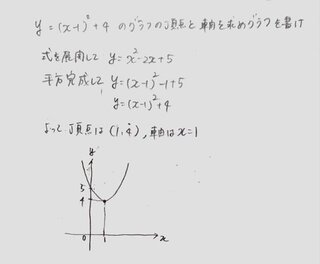 y=(x-1)²+4 のグラフの頂点と軸を求めグラフを書け
式を展開して y=x²-2x+5
平方完成して y=(x-1)²-1+5
y=(x-1)²+4
よって頂点は(1,4), 軸はx=1
y
5
4
0
1
x